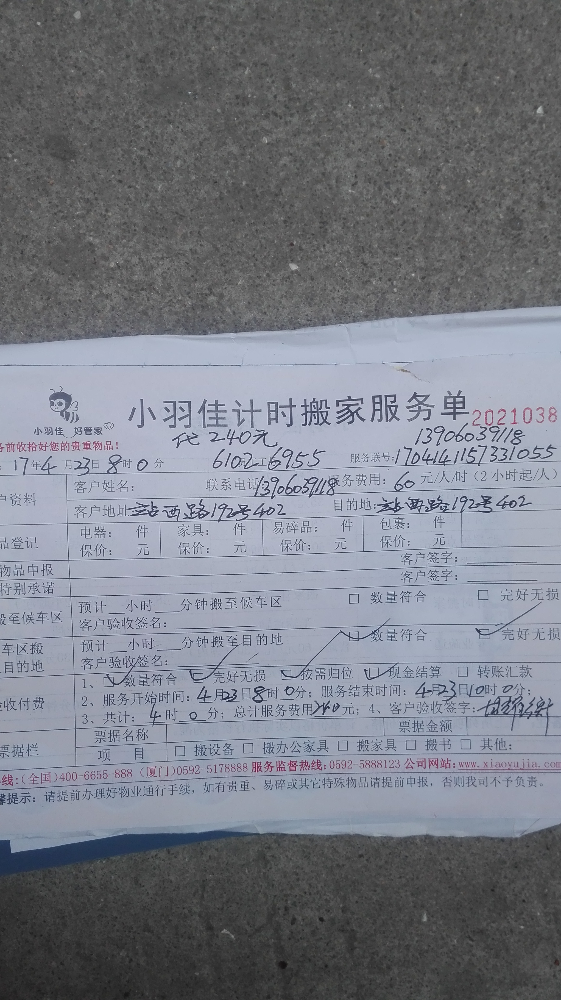 小羽佳 好管家
小羽佳计时搬家服务单 2021038
务前收拾好您的贵重物品！ 代240元 13906039118
17年4月23日8时0分 6102工6955 服务账号:1704141157331055
户资料 客户姓名: 联系电话13906039118 服务费用:60元/人/时(2小时起/人)
客户地址:站西路192号402 目的地:站西路192号402
品登记 电器: 件 家具: 件 易碎品: 件 包裹: 件
保价: 元 保价: 元 保价: 元 保价: 元
物品申报 客户签字:
特别承诺 客户签字:
搬至候车区 预计__小时__分钟搬至候车区 □ 数量符合 □ 完好无损
客户验收签名:
车区搬 预计__小时__分钟搬至目的地 ☑ 数量符合 ☑ 完好无损
目的地 客户验收签名:
1、☑ 数量符合 ☑ 完好无损 ☑ 按需归位 ☑ 现金结算 □ 转账汇款
验收付费 2、服务开始时间:4月23日8时0分; 服务结束时间:4月23日10时0分;
3、共计:4时0分; 总计服务费用240元; 4、客户验收签字:
票据栏 票据名称 票据金额
项 目 □ 搬设备 □ 搬办公家具 □ 搬家具 □ 搬书 □ 其他:
线:(全国)400-6655 888 (厦门)0592 5178888 服务监督热线:0592-5888123 公司网站:www.xiaoyujia.com
馨提示: 请提前办理好物业通行手续,如有贵重、易碎或其它特殊物品请提前申报,否则我司不予负责。